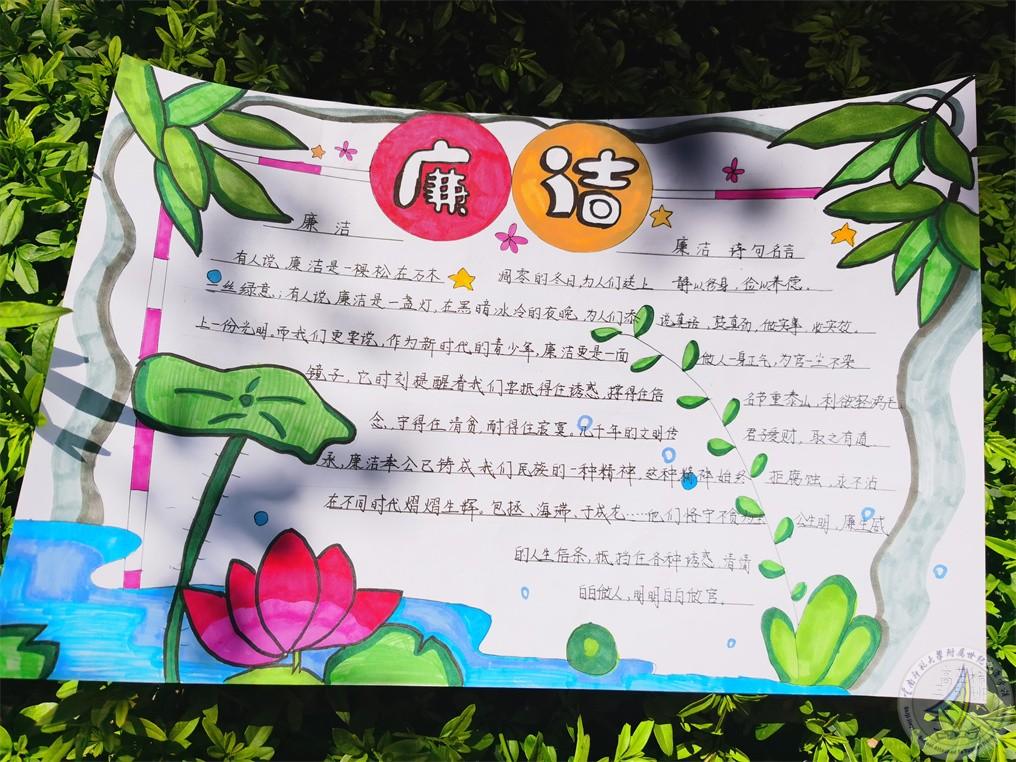 廉洁
廉 洁
有人说,廉洁是一棵松,在万木凋零的冬日为人们送上
一丝绿意;有人说,廉洁是一盏灯,在黑暗冰冷的夜晚,为人们添
上一份光明。而我们更要说,作为新时代的青少年,廉洁更是一面
镜子,它时刻提醒着我们要抵得住诱惑,撑得住信
念,守得住清贫,耐得住寂寞。几千年的文明传
承,廉洁奉公已铸成我们民族的一种精神,这种精神始终
在不同时代熠熠生辉。包拯、海瑞、于成龙……他们将宁不贪
的人生信条,抵挡住各种诱惑,清清
白白做人,明明白白做官。
廉洁 诗句名言
静以修身,俭以养德。
说真话,鼓真劲,做实事,收实效。
做人一身正气,为官一尘不染
名节重泰山,利欲轻鸿毛
君子爱财,取之有道
拒腐蚀,永不沾
公生明,廉生威